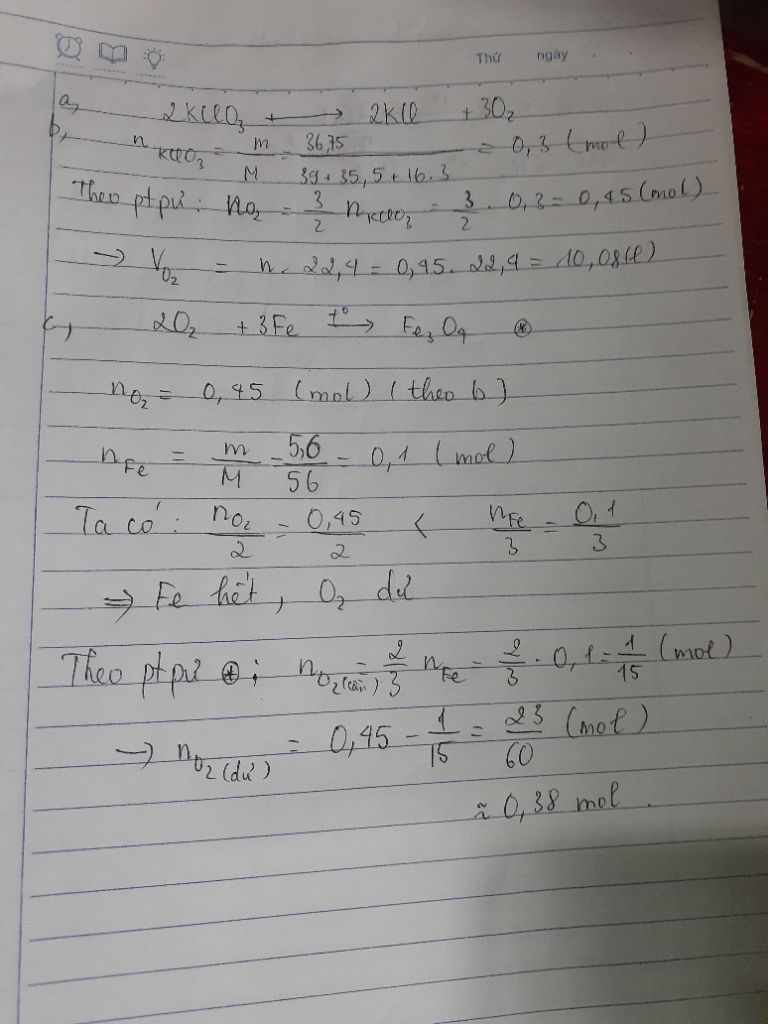 Thứ ngày
a, 2KClO₃ ⟷ 2KCl + 3O₂
b, n KClO₃ = m/M = 36,75/(39+35,5+16.3) = 0,3 (mol)
Theo ptpứ: nO₂ = 3/2 nKClO₃ = 3/2 . 0,3 = 0,45 (mol)
→ VO₂ = n. 22,4 = 0,45. 22,4 = 10,08(l)
c, 2O₂ + 3Fe t°→ Fe₃O₄ ⊛
nO₂ = 0,45 (mol) (theo b)
nFe = m/M = 5,6/56 = 0,1 (mol)
Ta có: nO₂/2 = 0,45/2 < nFe/3 = 0,1/3
⇒ Fe hết, O₂ dư
Theo ptpứ ⊛: nO₂(cần) = 2/3 nFe = 2/3 . 0,1 = 1/15 (mol)
→ nO₂(dư) = 0,45 - 1/15 = 23/60 (mol)
≈ 0,38 mol.